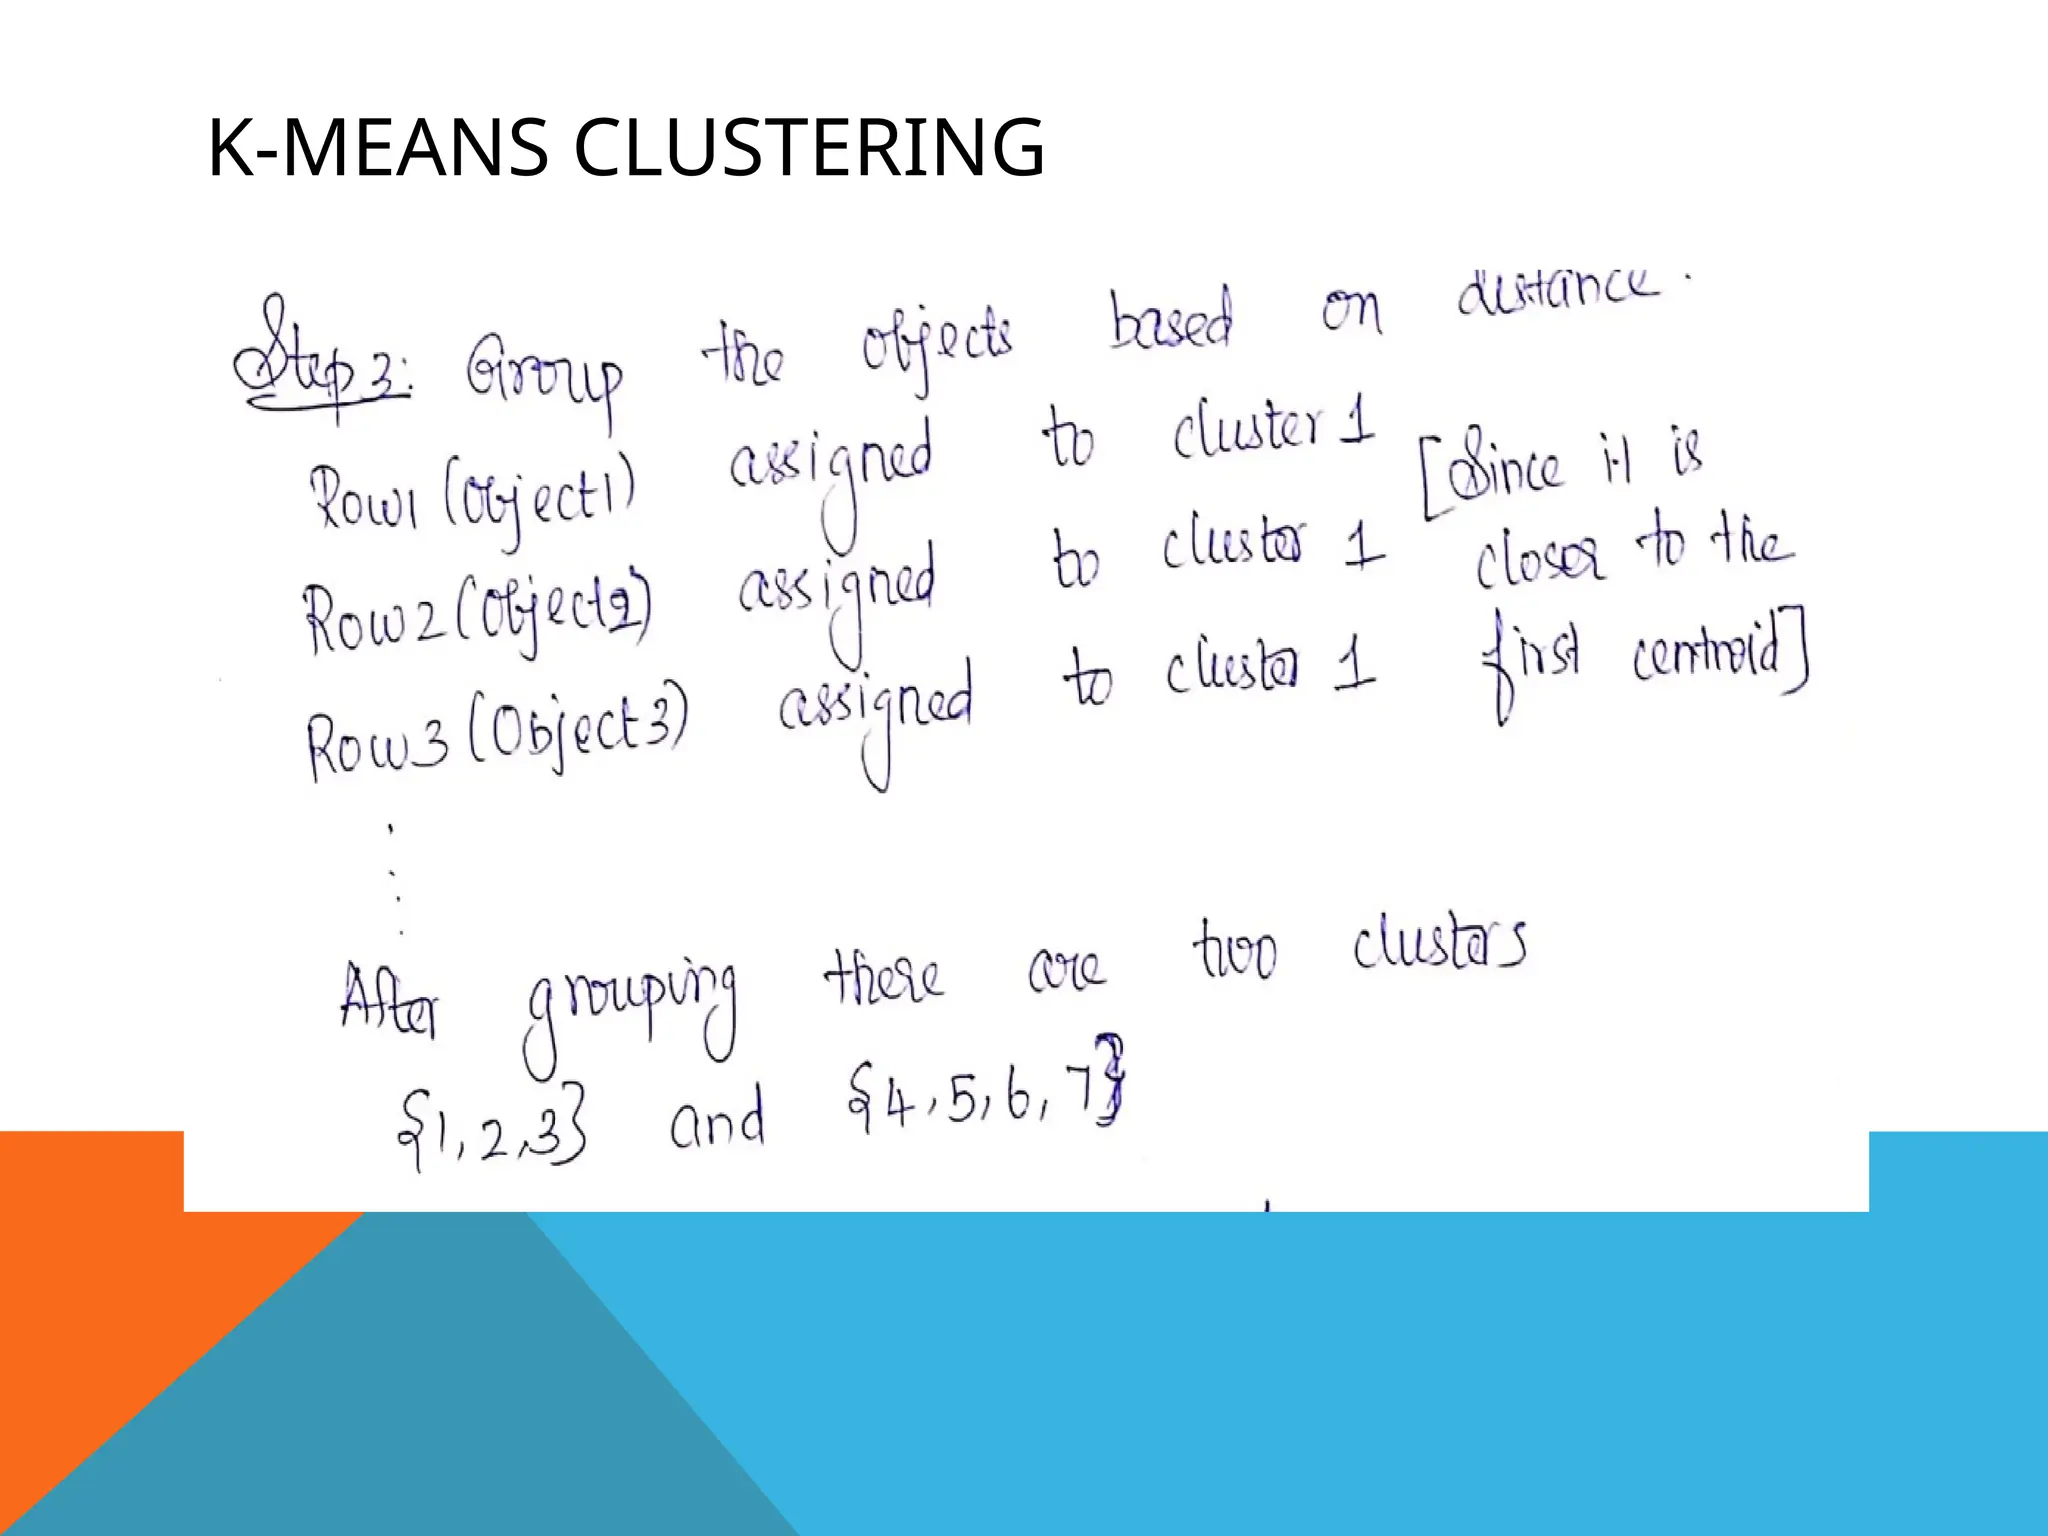 K-MEANS CLUSTERING
Step 3: Group the objects based on distance.
Row1 (Object1) assigned to cluster 1
[Since it is
Row2 (Object2) assigned to cluster 1 closer to the
Row3 (Object3) assigned to cluster 1 first centroid]
After grouping there are two clusters
{1, 2, 3} and {4, 5, 6, 7}